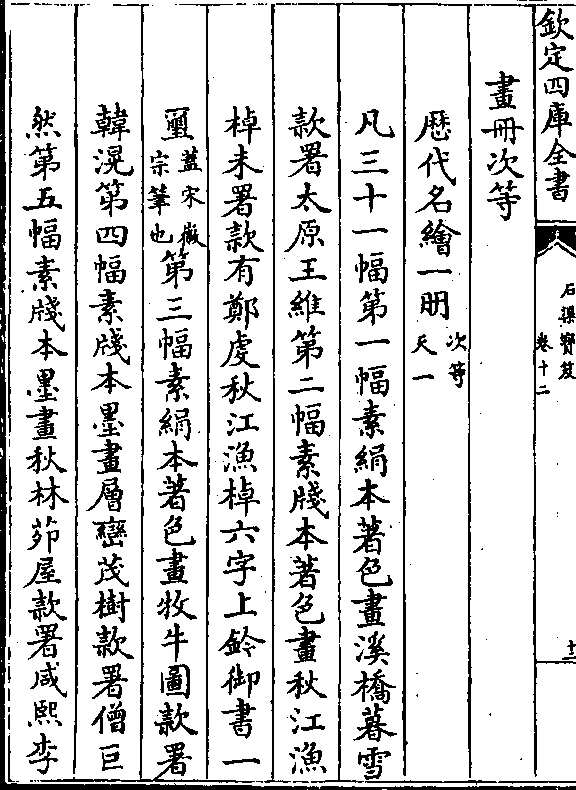 欽定四庫全書
石渠寶笈
卷十二
十二
畫冊次等
歷代名繪一冊次等天一
凡三十一幅第一幅素絹本著色畫溪橋暮雪
款署太原王維第二幅素牋本著色畫秋江漁
棹未署款有鄭虔秋江漁棹六字上鈐御書一
璽蓋宋徽宗筆也第三幅素絹本著色畫牧牛圖款署
韓滉第四幅素牋本墨畫層巒茂樹款署僧巨
然第五幅素牋本墨畫秋林茆屋款署咸熙李